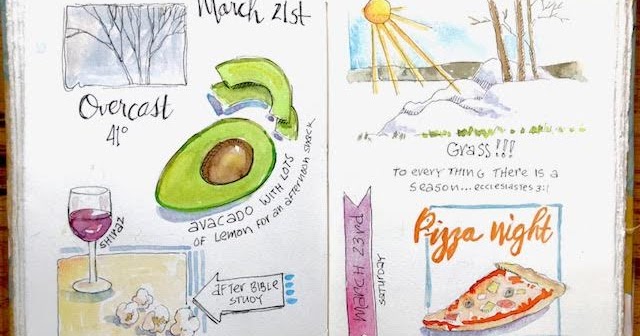 March 21st
Overcast
41°
avocado with lots
of lemon for an afternoon snack
Shiraz
after Bible
Study
Grass!!!
To every thing there is a
season... ecclesiastes 3:1
March 23rd
Saturday
Pizza night